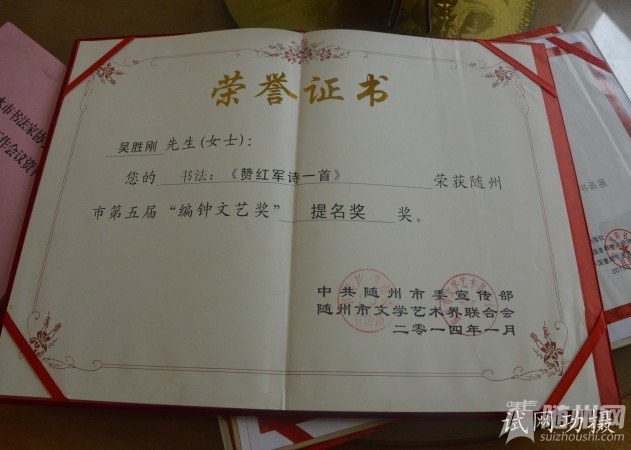 荣誉证书
吴胜刚 先生(女士)：
您的 书法：《赞红军诗一首》 荣获随州
市第五届“编钟文艺奖” 提名奖 奖。
中共随州市委宣传部
随州市文学艺术界联合会
二零一四年一月
市书法家协
工作会议资
书画展
随州网
suizhoushi.com